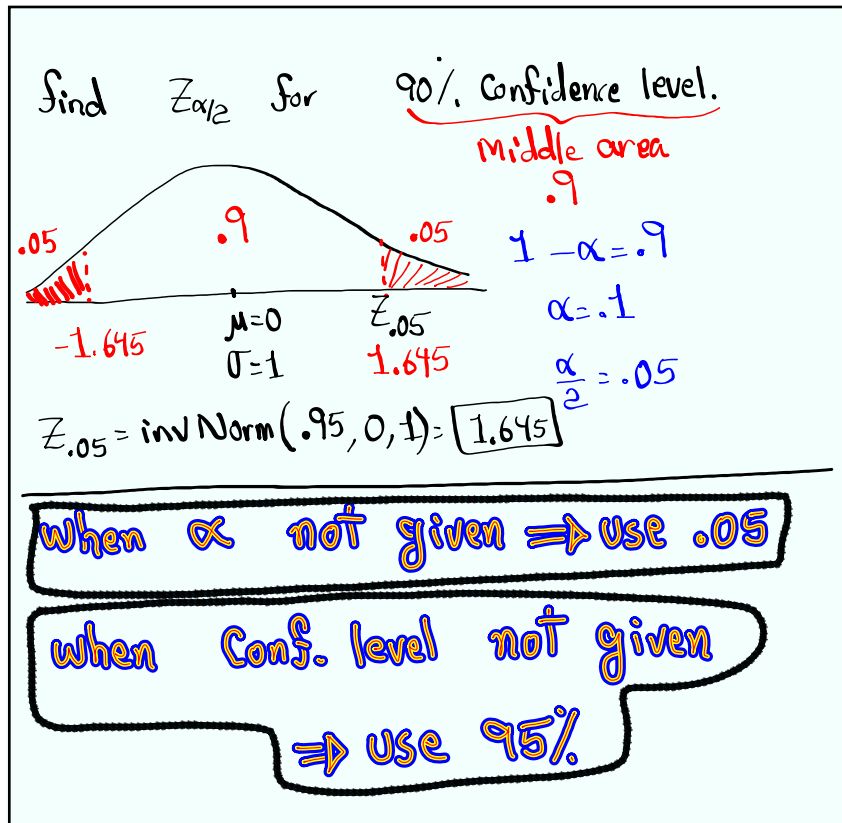 find Zα/2 for 90% Confidence level.
Middle area
.9
.05 .9 .05
1 - α = .9
α = .1
α/2 = .05
-1.645 μ=0 Z.05
σ=1 1.645
Z.05 = invNorm(.95, 0, 1) = 1.645
when α not given ⇒ use .05
when Conf. level not given
⇒ use 95%